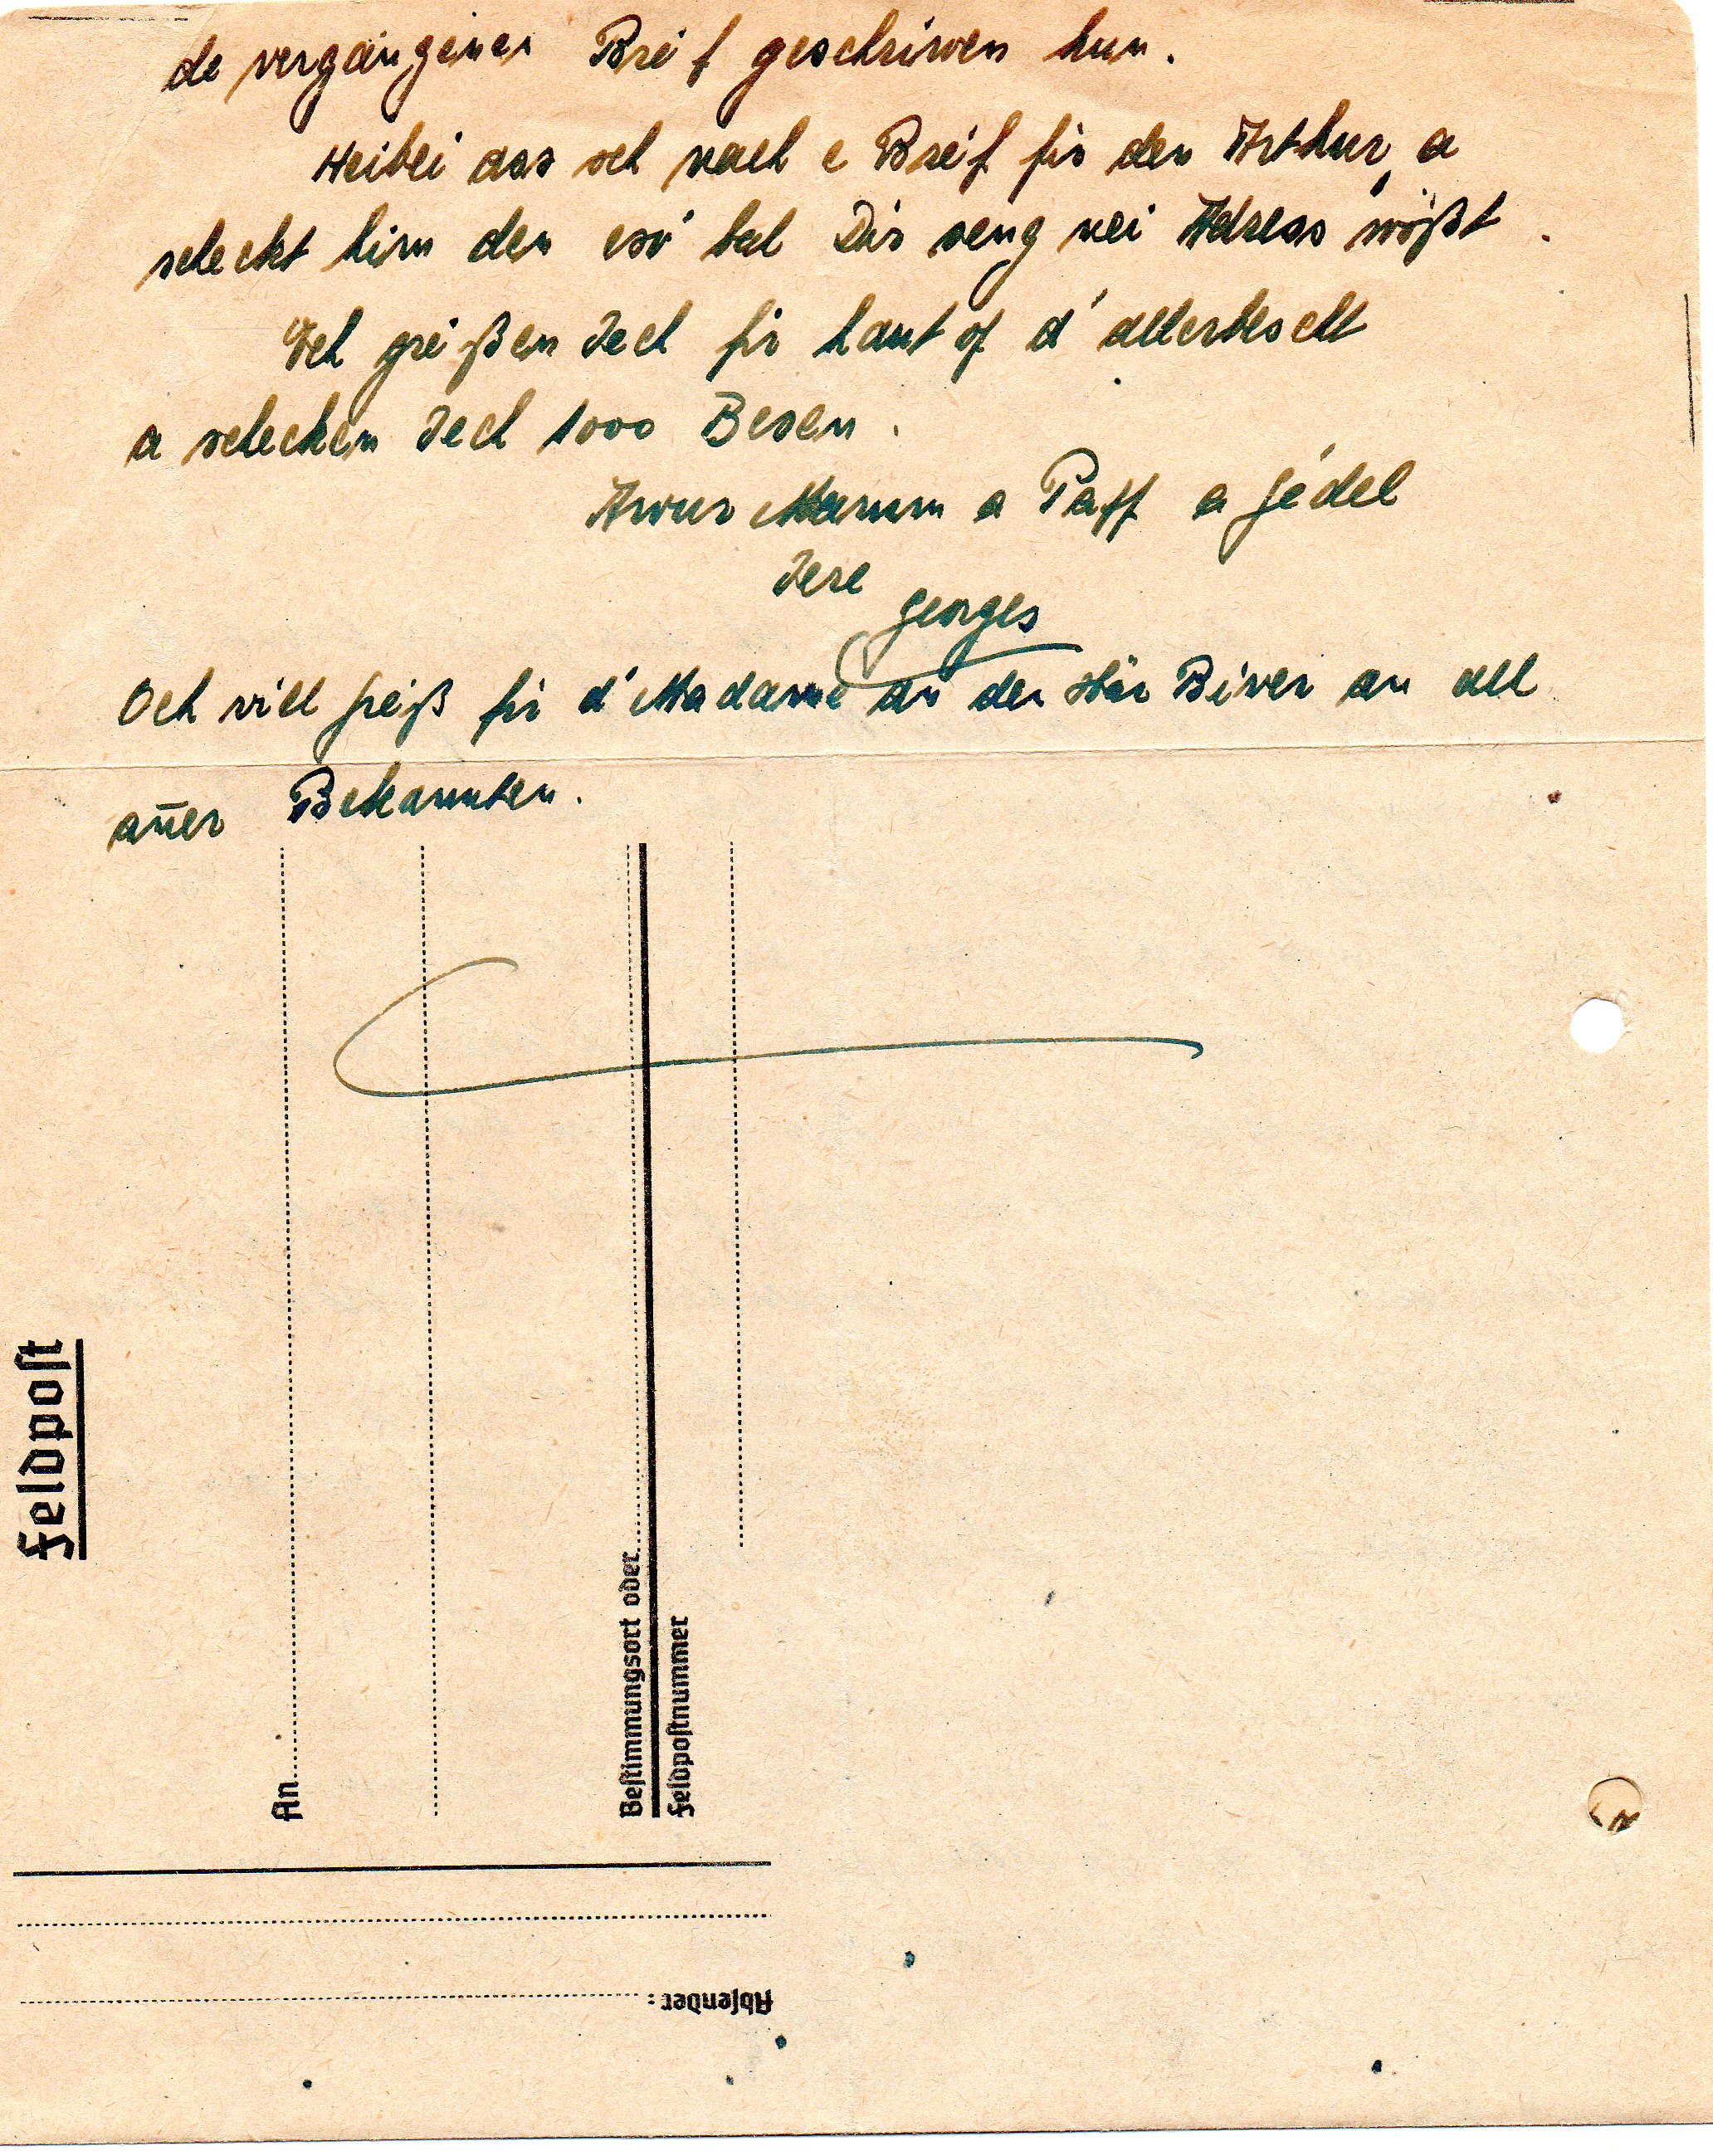 de vergangenen Breif geschriwen hun.
Heibei ass och nach e Breif fir den Arthur, a
scheckt him den esó bal Dir seng nei Adress wößt.
Ech greißen Iech fir haut of d'allerbescht
a schecken Iech 1000 Besen.
Awur Mamm a Papp a Jédel
Iere
Georges
Och vill Greiß fir d'Madame an den Här Biver an all
aner Bekannten.
Feldpost
An
Bestimmungsort oder
Feldpostnummer
Absender: